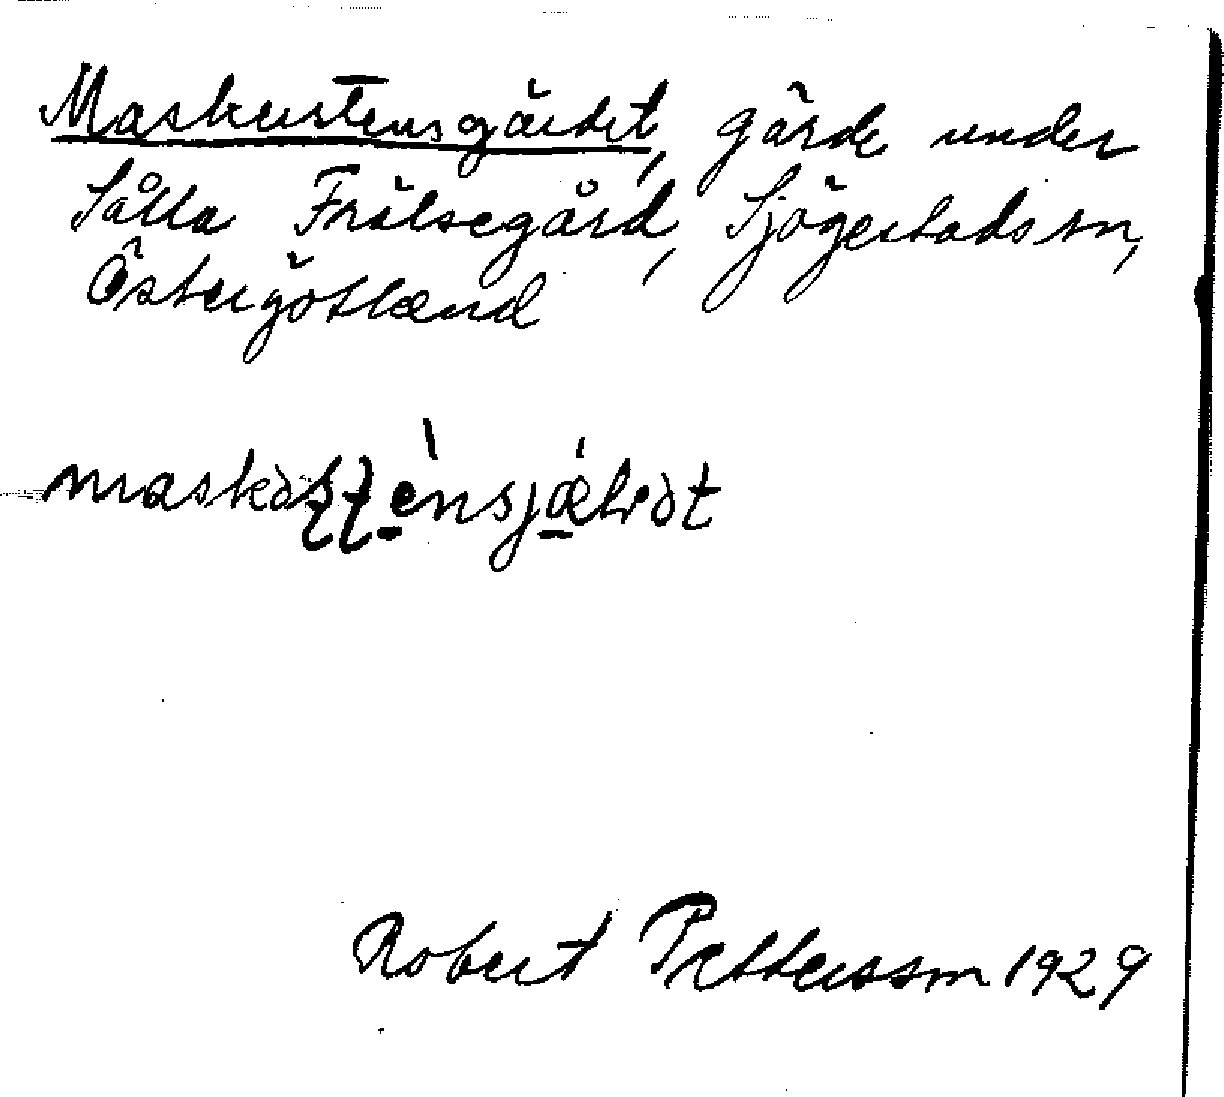 Maskerstensgärdet, gärde under
Sålla Frälsegård, Sjögestads sn,
Östergötland
Robert Pettersson 1929